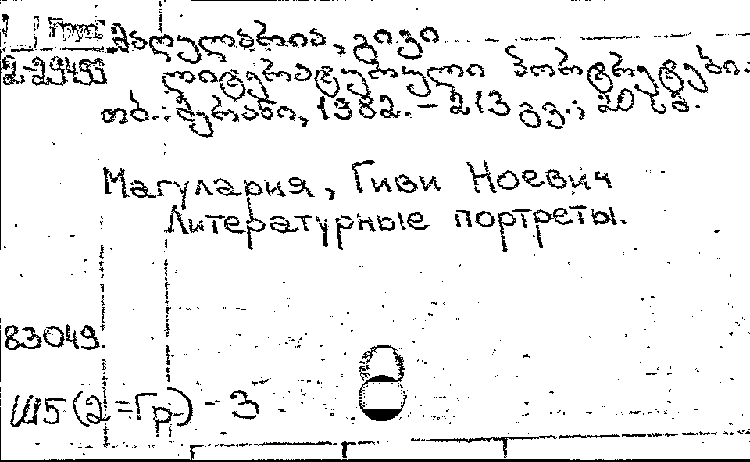 Груз
მაღულარია, გივი
2-29499
ლიტერატურული პორტრეტები.
თბ.: მერანი, 1982. - 213 გვ.; 20 სმ.
Магулария, Гиви Ноевич
Литературные портреты.
83049.
Ш5(2=Гр) - 3